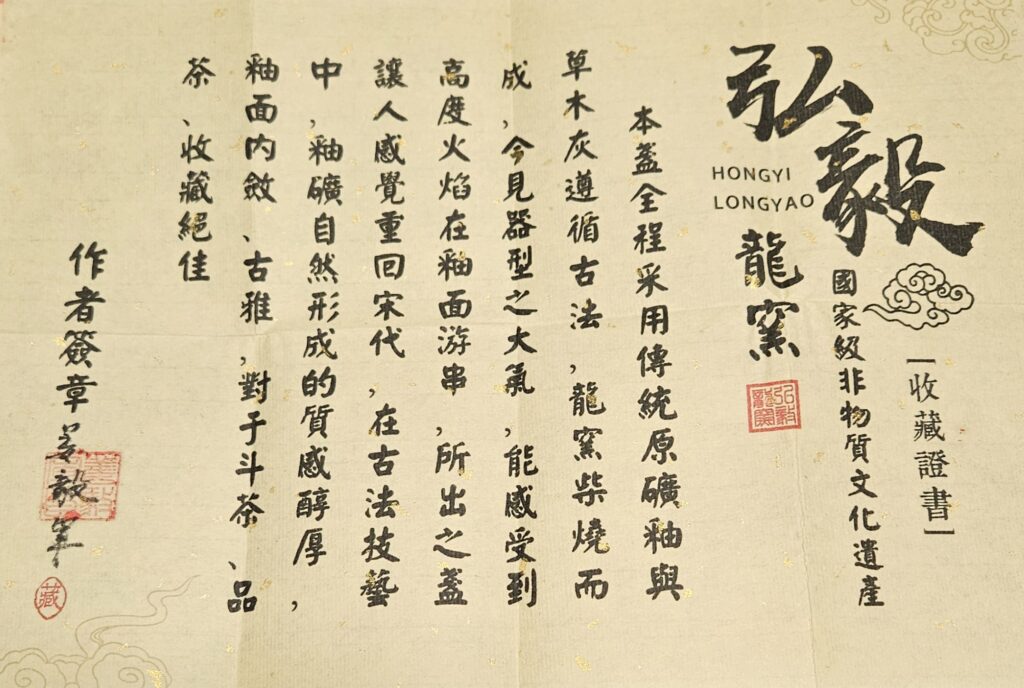 [收藏證書]
弘毅
國家級非物質文化遺產
HONGYI
LONGYAO
龍窯
弘毅龍窯
本盞全程采用傳統原礦釉與
草木灰遵循古法,龍窯柴燒而
成,今見器型之大氣,能感受到
高度火焰在釉面游串,所出之盞
讓人感覺重回宋代,在古法技藝
中,釉礦自然形成的質感醇厚,
釉面内斂、古雅,對于斗茶、品
茶、收藏絕佳
作者簽章
藏